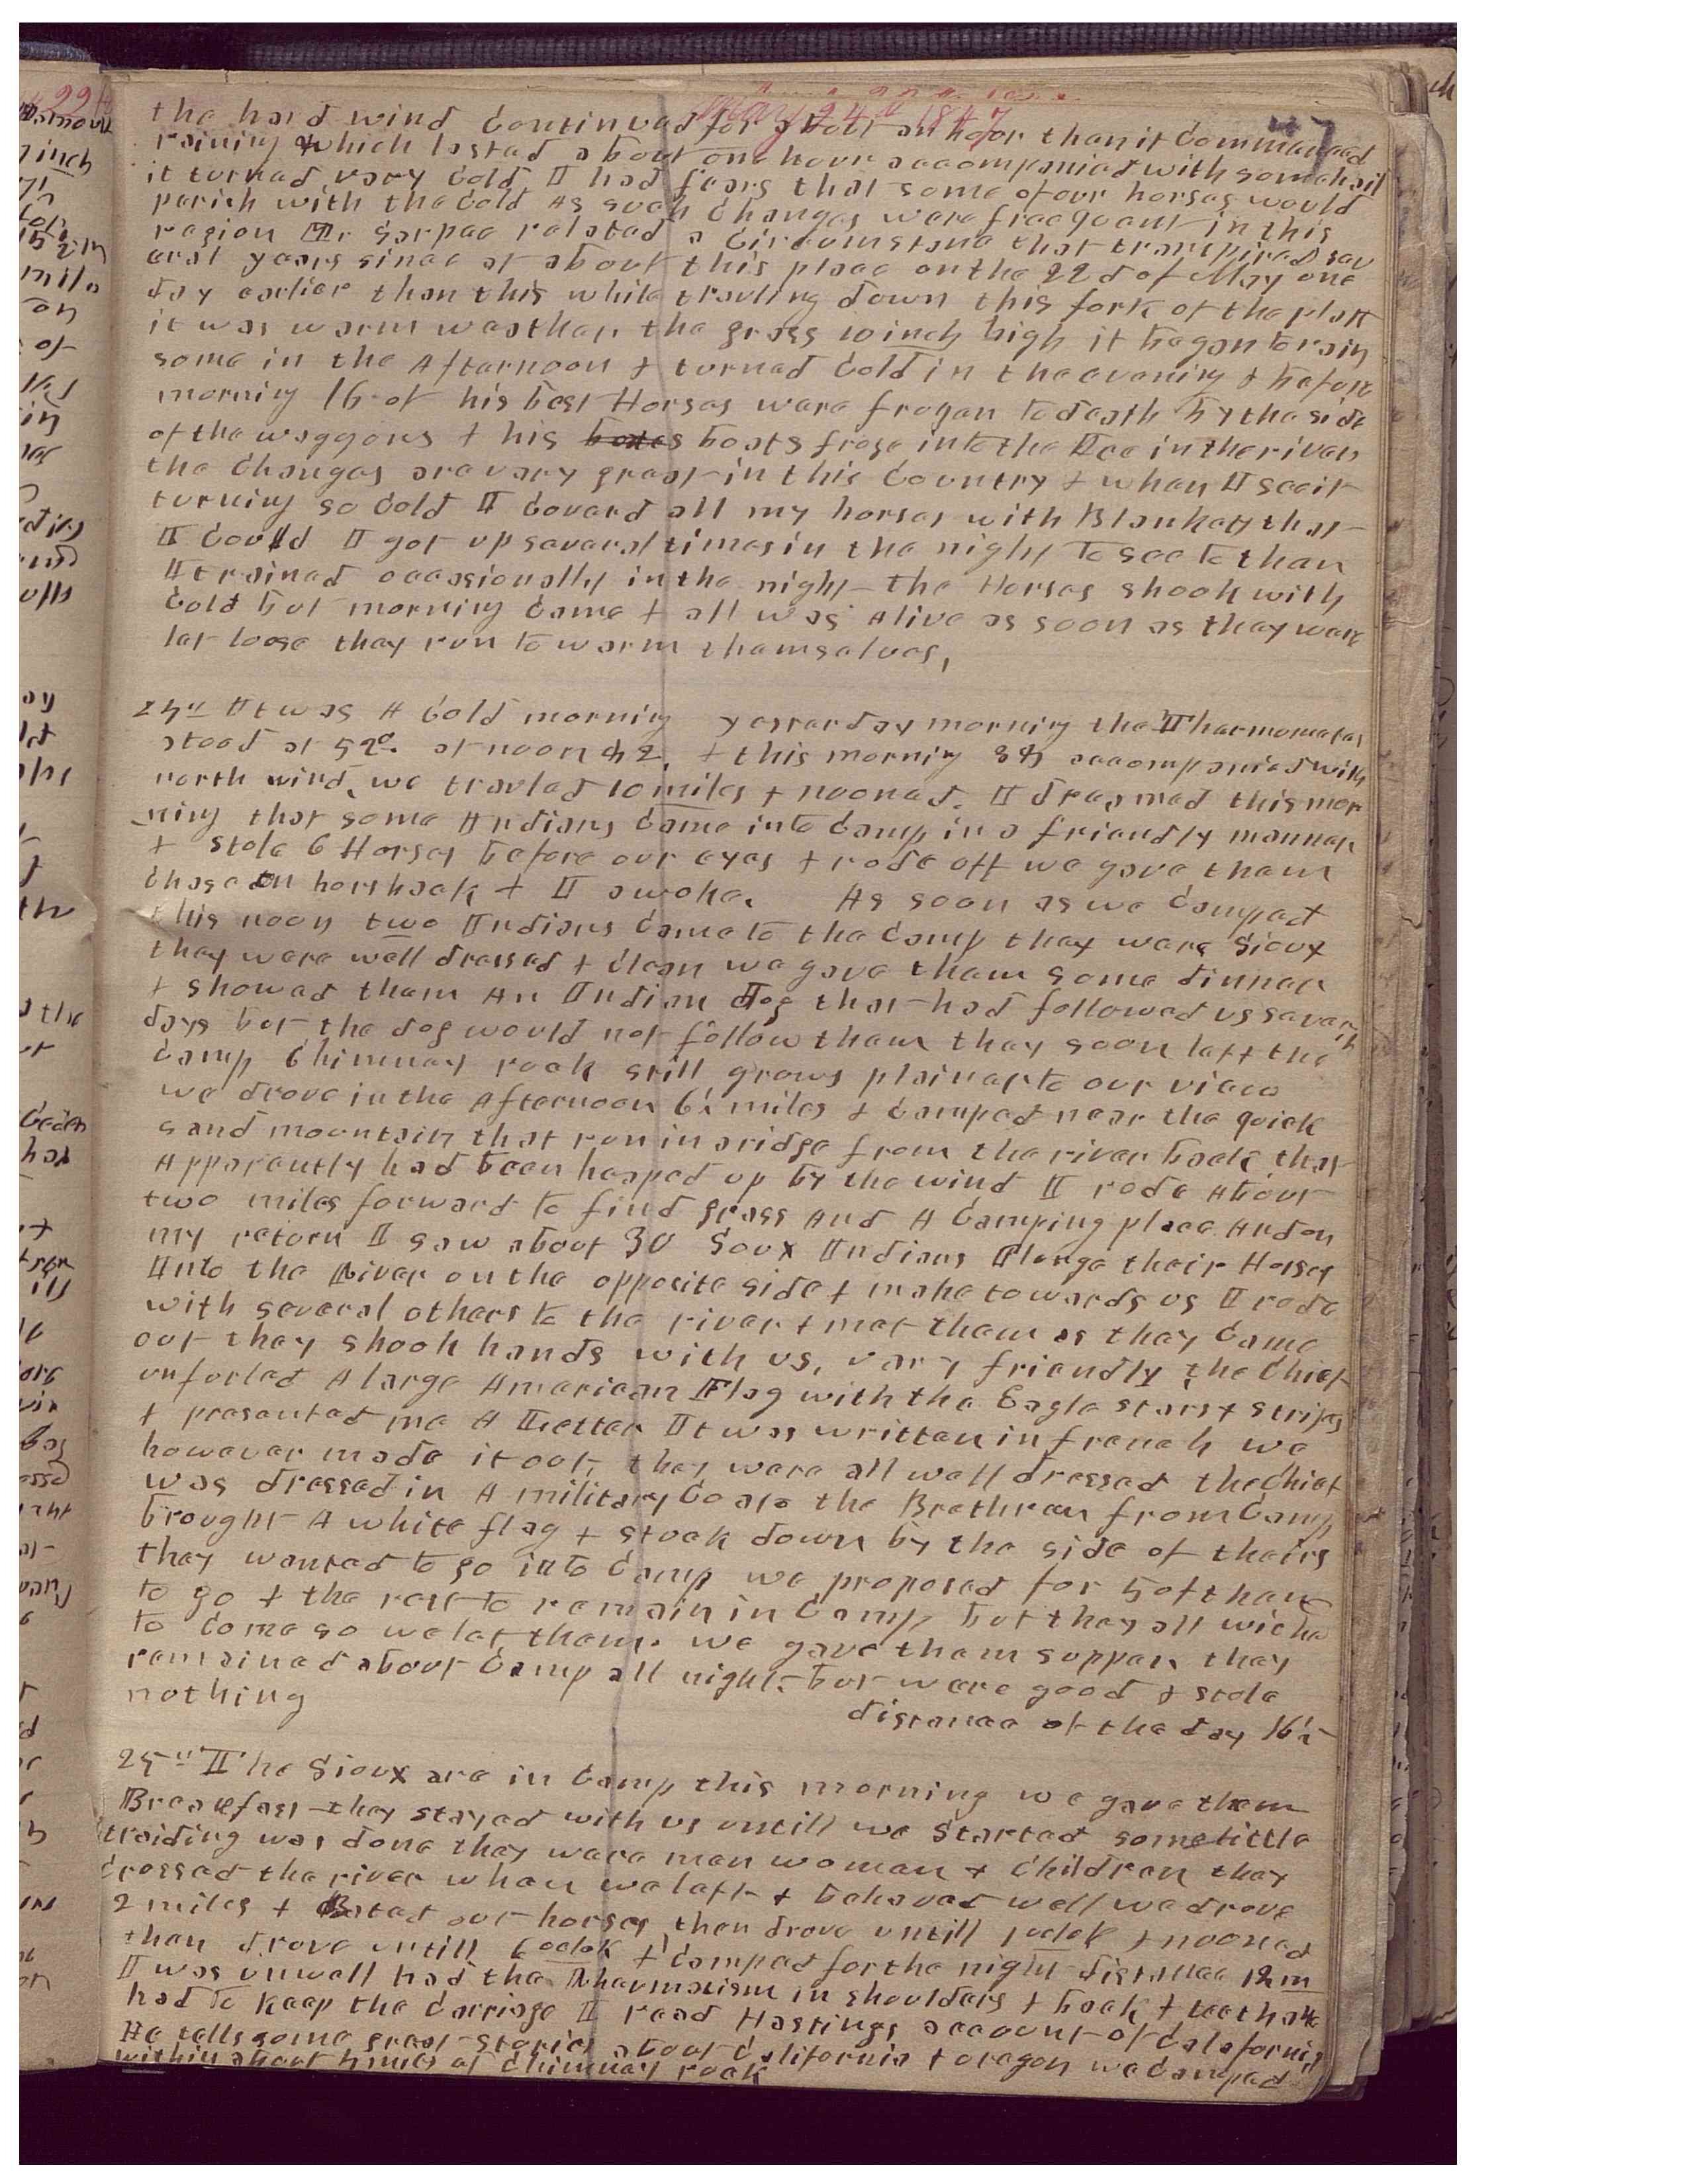 May 24th 1847
the hard wind Continued for about an hour then it Commenced
raining which lasted about one hour accompanied with some hail
it turned very Cold I had fears that some of our horses would
perish with the Cold As such Changes were freequent in this
region Mr Sarpee related a Circumstance that transpired sev
eral years since at about this place on the 22d of May one
day earlier than this while travling down this fork of the plat
it was warm weather the grass 10 inch high it began to rain
some in the Afternoon & turned Cold in the evening & before
morning 16 of his best Horses were frozen to death by the side
of the waggons & his boats froze into the Ice in the river
the Changes are very great in this Country & when I see it
turning so Cold I Coverd all my horses with Blankets that
I Could I got up several times in the night to see to them
It rained occasionally in the night the Horses shook with
Cold but morning Came & all was Alive as soon as they ware
let loose they run to warm themselves,
24th It was A Cold morning yesterday morning the Thermometer
stood at 52°. at noon 42, & this morning accompanied with
north wind, we travled 10 miles & nooned. I dreamed this mor
ning that some Indians Came into Camp in a friendly manner
& stole 6 Horses before our eyes & rode off we gave them
Chase on horsback & I awoke. As soon as we Camped
this noon two Indians Came to the Camp they were Sioux
they were well dressed & Clean we gave them some dinner
& showed them An Indian dog that had followed us several
days but the dog would not follow them they soon left the
Camp Chimney rock still grows plainer to our view
we drove in the Afternoon 6½ miles & Camped near the quick
sand mountain that run in a ridge from the river back that
Apparently had been heaped up by the wind I rode About
two miles forward to find grass And A Camping place And on
my return I saw about 30 Soux Indians Plunge their Horses
Into the River on the opposite side & make towards us I rode
with several others to the river & met them as they Came
out they shook hands with us, very friendly the Chief
unforled A large American Flag with the Eagle stars & stripes
& presented me A Letter It was written in french we
however made it out, they were all well dressed the Chief
was dressed in A military Coat the Brethren from Camp
brought A white flag & stuck down by the side of theirs
they wanted to go into Camp we proposed for 5 of them
to go & the rest to remain in Camp but they all wished
to Come so we let them. we gave them supper they
remained about Camp all night but were good & stole
nothing
distance of the day 16½
25th The Sioux are in Camp this morning we gave them
Breakfast they stayed with us untill we started some little
traiding was done they ware men women & Children they
Crossed the river when we left & behaved well we drove
2 miles & Bated our horses then drove untill 1 oclok & nooned
then drove untill 6 oclok & Camped for the night distance 12 m
I was unwell had the Rheumatism in shoulders & back & teethake
had to keep the Carriage I read Hastings account of Calafornia
He tells some great stories about California & oregon we Camped
within about miles of Chimney rock